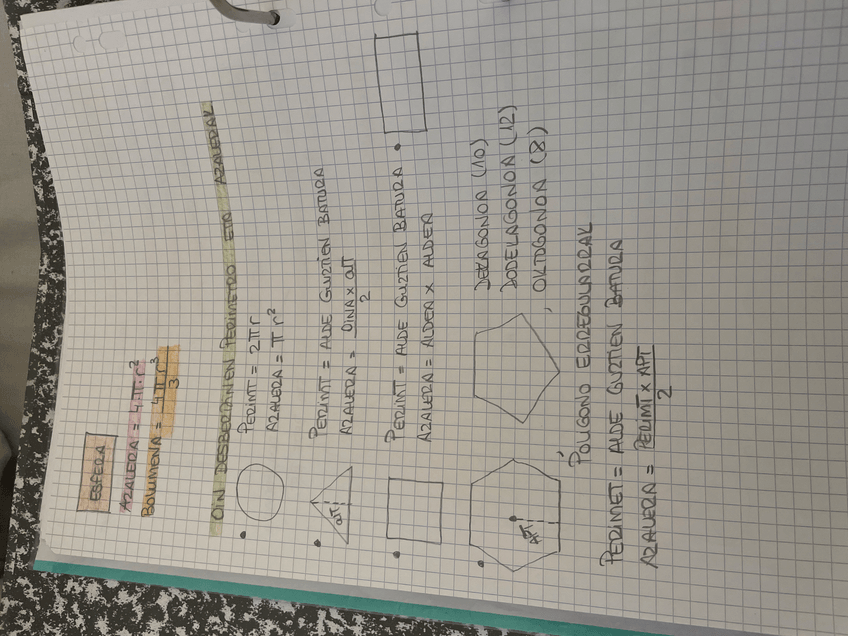 ESFERA
AZALERA = 4·π·r²
BOLUMENA = 4πr³/3
OIN DESBERDINEN PERIMETRO ETA AZALERAK
PERIMT = 2πr
AZALERA = πr²
alT
PERIMT = ALDE GUZTIEN BATURA
AZALERA = OINA x alT/2
PERIMT = ALDE GUZTIEN BATURA
AZALERA = ALDEA x ALDEA
APT
DEKAGONOA (10)
DODEKAGONOA (12)
, OKTOGONOA (8)
POLIGONO ERREGULARRAK
PERIMET = ALDE GUZTIEN BATURA
AZALERA = PERIMT x APT/2